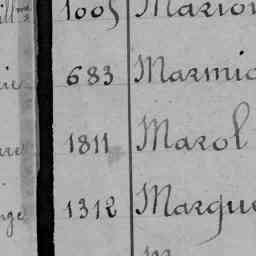 1005 Mario
683 Marmi
1811 Marol
1312 Margue